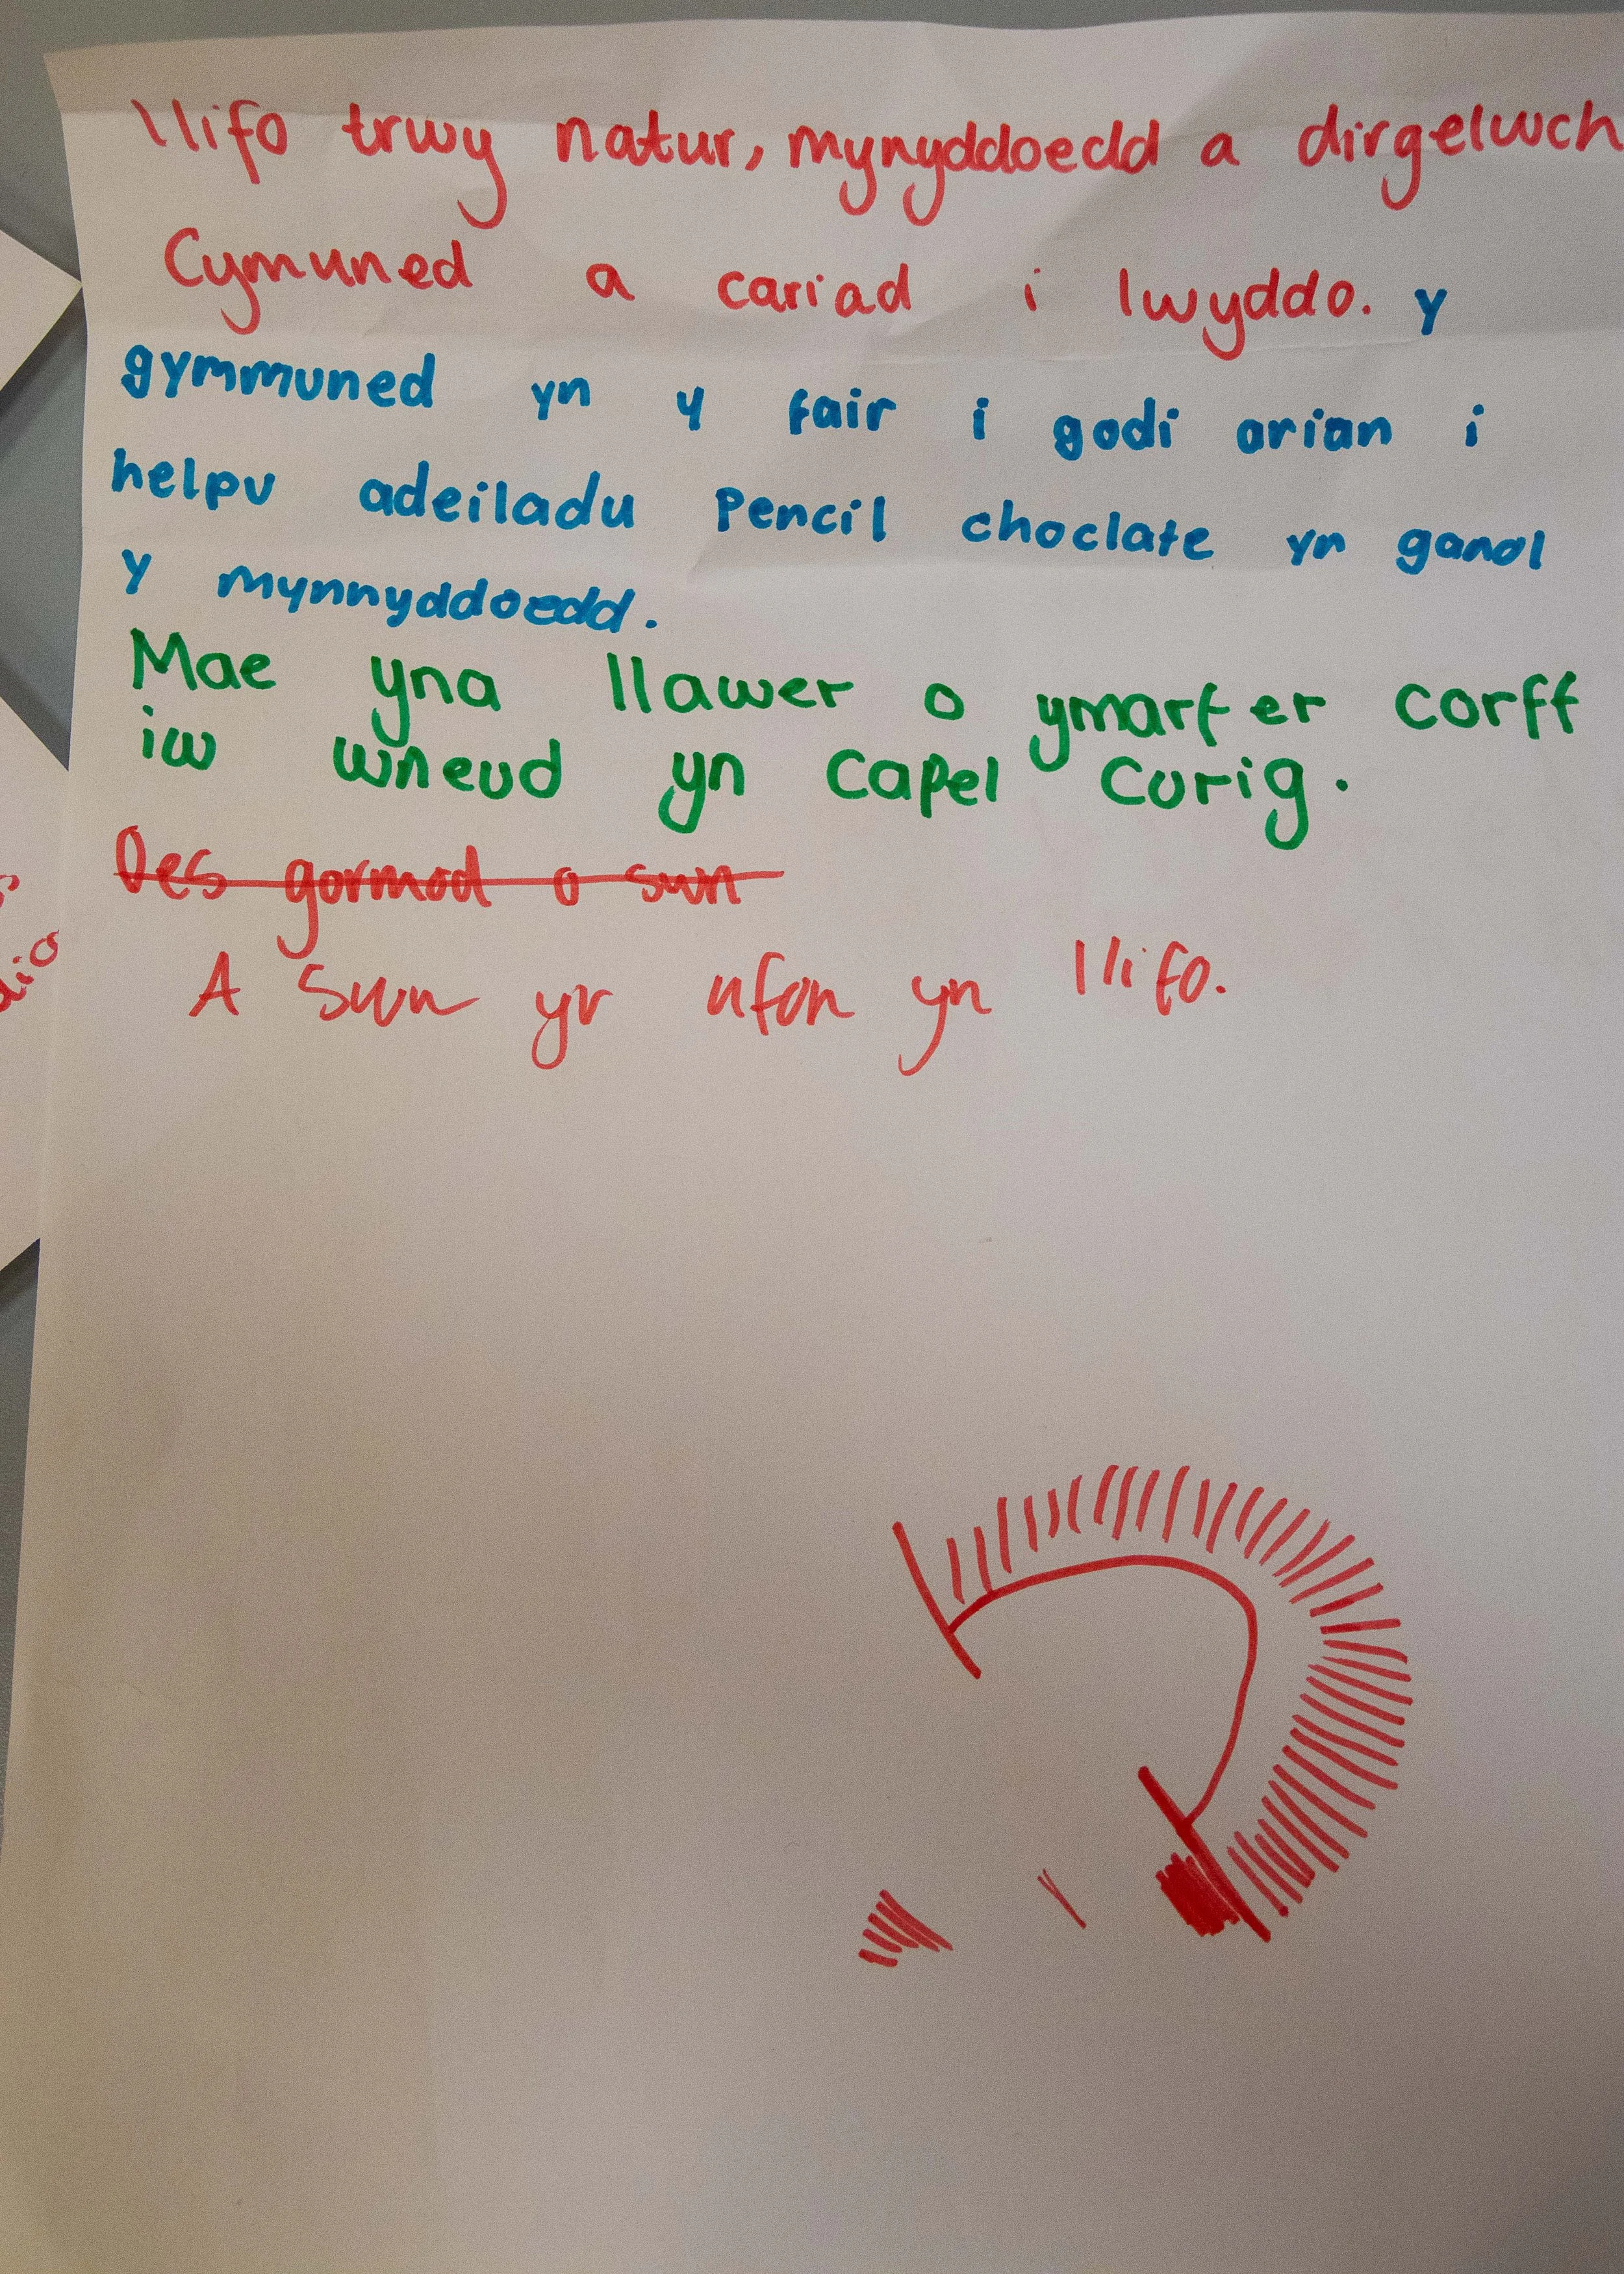 llifo trwy natur, mynyddoedd a dirgelwch
Cymuned a cariad i lwyddo. y
gymmuned yn y fair i godi arian i
helpu adeiladu Pencil choclate yn ganol
y mynnyddoedd.
Mae yna llawer o ymarfer corff
iw wneud yn Capel Curig.
Oes gormod o swn
A swn yr afon yn llifo.